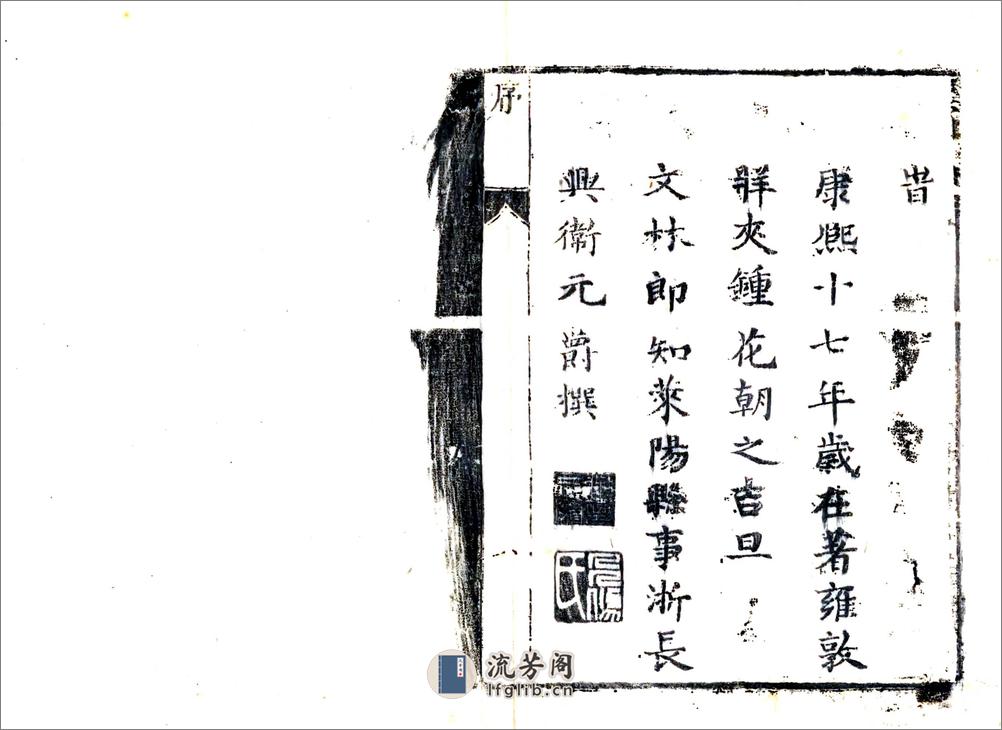 旹
康熙十七年歲在著雍敦
牂夾鍾花朝之吉旦
文林郎知萊陽縣事浙長
興衛元爵撰
序
八
流芳阁
lfglib.cn